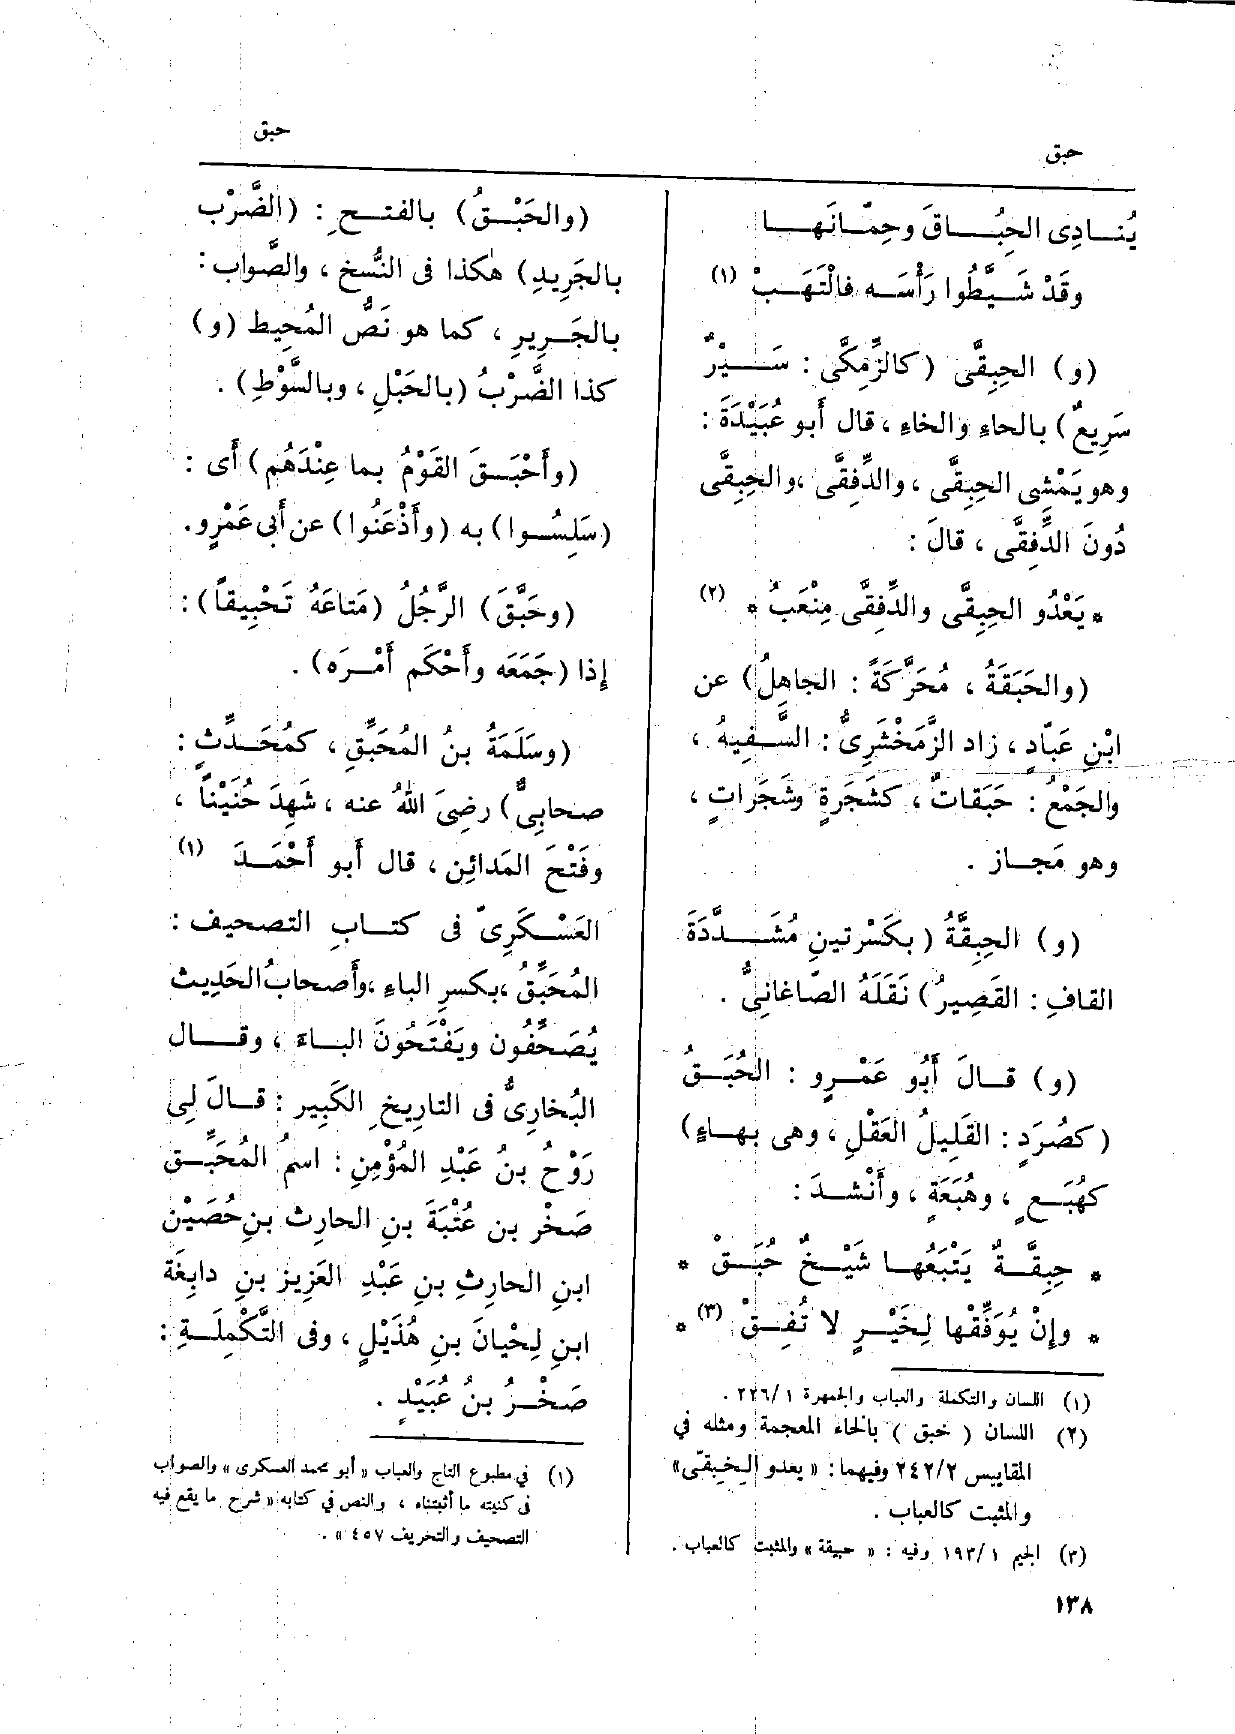 حبق
حبق
يُنَادِى الحِبَاقَ وحِمّانَهَا
وقَدْ شَيَّطُوا رَأْسَه فالْتَهَبْ (١)
(و) الحِبِقَّى (كالزِّمِكَّى : سَيْرٌ
سَرِيعٌ) بالحاءِ والخاءِ ، قال أبو عُبَيْدَةَ :
وهو يَمْشِى الحِبِقَّى ، والدِّفِقَّى ، والحِبِقَّى
دُونَ الدِّفِقَّى ، قالَ :
* يَعْدُو الحِبِقَّى والدِّفِقَّى مِنْعَبُ * (٢)
(والحَبَقَةُ ، مُحَرَّكَةً : الجاهِلُ) عن
ابْنِ عَبّادٍ ، زاد الزَّمَخْشَرِىُّ : السَّفِيهُ ،
والجَمْعُ : حَبَقاتٌ ، كشَجَرَةٍ وشَجَراتٍ ،
وهو مَجاز .
(و) الحِبِقَّةُ (بكَسْرتينِ مُشَدَّدَةَ
القافِ : القَصِيرُ) نَقَلَهُ الصّاغانِىُّ .
(و) قالَ أَبُو عَمْرٍو : الحُبَقُ
(كصُرَدٍ : القَلِيلُ العَقْلِ ، وهى بهاءٍ)
كهُبَعٍ ، وهُبَعَةٍ ، وأَنْشدَ :
* حِبِقَّةٌ يَتْبَعُها شَيْخٌ حُبَقْ *
* وإنْ يُوَفِّقْها لِخَيْرٍ لا تُفِقْ (٣) *
(١) اللسان والتكملة والعباب والجمهرة ٢٢٦/١ .
(٢) اللسان ( خبق ) بالخاء المعجمة ومثله في
المقاييس ٢٤٢/٢ وفيهما : « يعدو الخِبِقّى»
والمثبت كالعباب .
(٣) الجيم ١٩٣/١ وفيه : « حبيقة » والمثبت كالعباب .
(والحَبْقُ) بالفتحِ : (الضَّرْب
بالجَرِيدِ) هكذا فى النُّسخ ، والصَّواب :
بالجَرِيرِ ، كما هو نَصُّ المُحِيط (و)
كذا الضَّرْبُ (بالحَبْلِ ، وبالسَّوْطِ) .
(وأَحْبَقَ القَوْمُ بما عِنْدَهُم) أى :
(سَلِسُوا) به (وأَذْعَنُوا) عن أَبى عَمْرٍو.
(وحَبَّقَ) الرَّجُلُ (مَتاعَهُ تَحْبِيقاً) :
إذا (جَمَعَه وأَحْكَم أَمْرَه) .
(وسَلَمَةُ بنُ المُحَبِّقِ ، كمُحَدِّثٍ :
صحابِىٌّ) رضِىَ اللهُ عنه ، شَهِدَ حُنَيْناً ،
وفَتْحَ المَدائِن ، قال أَبو أَحْمَدَ (١)
العَسْكَرِىّ فى كتابِ التصحيف :
المُحَبِّقُ ،بكسرِ الباءِ ،وأَصحابُ الحَدِيث
يُصَحِّفُون ويَفْتَحُونَ الباءَ ، وقال
البُخارِىُّ فى التارِيخِ الكَبِير : قالَ لِى
رَوْحُ بنُ عَبْدِ المُؤْمِنِ : اسمُ المُحَبِّق
صَخْر بن عُتْبَةَ بنِ الحارِث بنِ حُصَيْن
ابنِ الحارِثِ بنِ عَبْدِ العَزِيز بنِ دابِغَة
ابنِ لِحْيانَ بنِ هُذَيْلٍ ، وفى التَّكْمِلَةِ :
صَخْرُ بنُ عُبَيْدٍ .
(١) في مطبوع التاج والعباب « أبو محمد العسكرى » والصواب
فى كنيته ما أثبتناه ، والنص في كتابه « شرح ما يقع فيه
التصحيف والتحريف ٤٥٧ » .
١٣٨